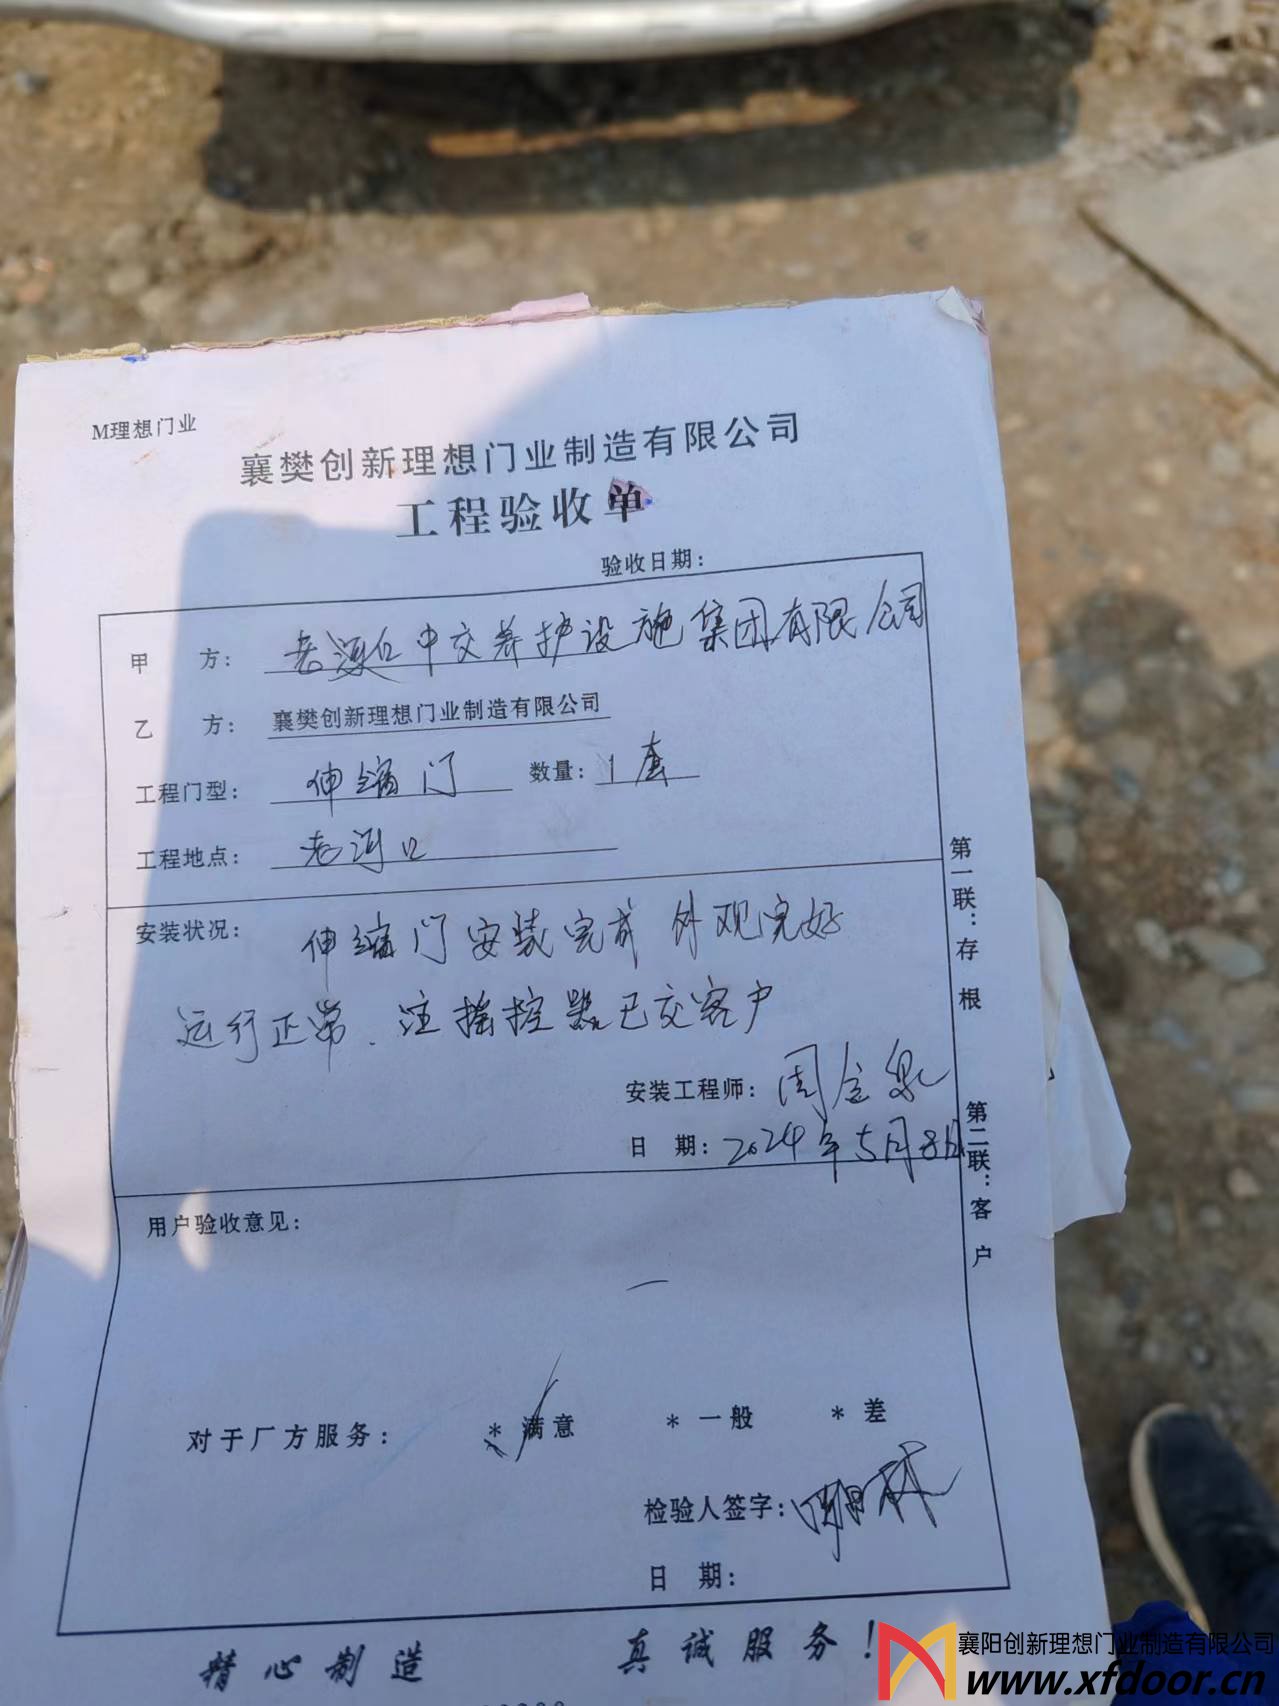 M理想门业
襄樊创新理想门业制造有限公司
工程验收单
验收日期：
甲 方： 老河口中交养护设施集团有限公司
乙 方： 襄樊创新理想门业制造有限公司
工程门型： 伸缩门 数量： 1套
工程地点： 老河口
安装状况： 伸缩门安装完成 外观完好
运行正常. 注摇控器已交客户
安装工程师： 周金泉
日 期： 2024年5月8日
第一联：存根 第二联：客户
用户验收意见：
对于厂方服务： * 满意 * 一般 * 差
检验人签字：
日 期：
精心制造 真诚服务！
襄阳创新理想门业制造有限公司
www.xfdoor.cn